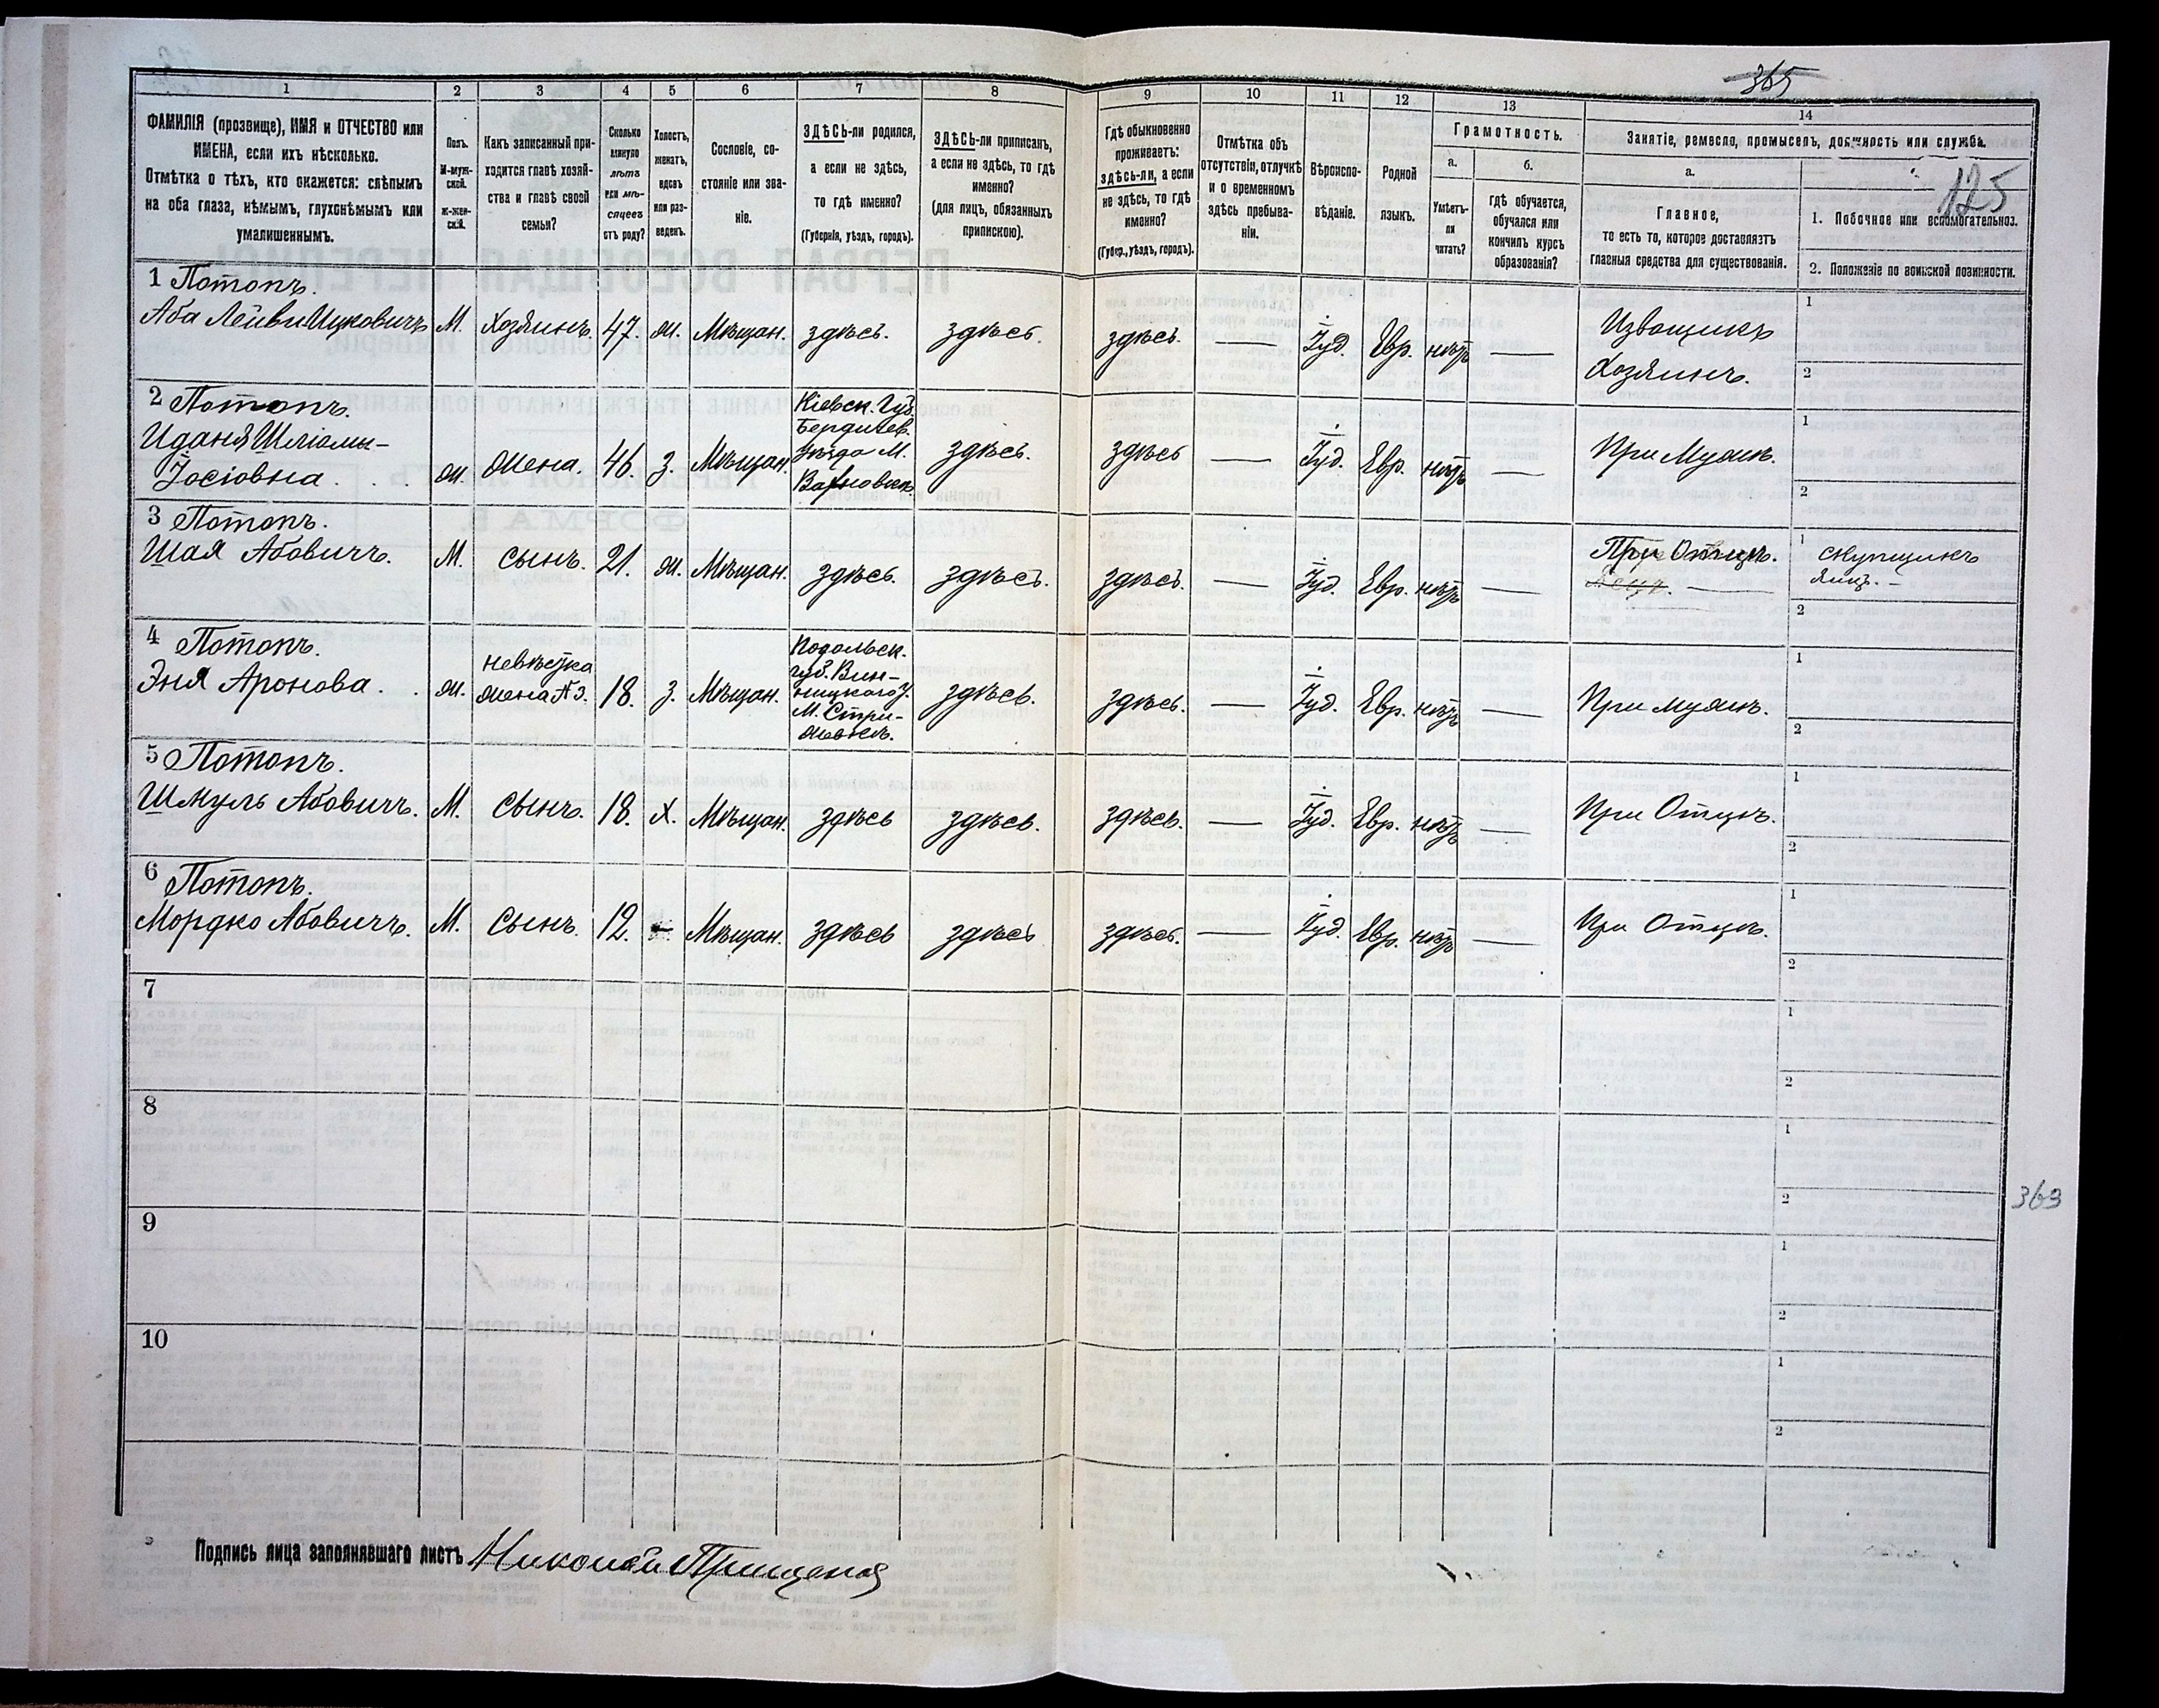 365
125
1
2
3
4
5
6
7
8
9
10
11
12
13
14
ФАМИЛІЯ (прозвище), ИМЯ и ОТЧЕСТВО или
ИМЕНА, если ихъ нѣсколько.
Отмѣтка о тѣхъ, кто окажется: слѣпымъ
на оба глаза, нѣмымъ, глухонѣмымъ или
умалишеннымъ.
Полъ.
М-муж-
ской.
Ж-жен-
скій.
Какъ записанный при-
ходится главѣ хозяй-
ства и главѣ своей
семьи?
Сколько
минуло
лѣтъ
или мѣ-
сяцевъ
отъ роду?
Холостъ,
женатъ,
вдовъ
или раз-
веденъ.
Сословіе, со-
стояніе или зва-
ніе.
ЗДѢСЬ-ли родился,
а если не здѣсь,
то гдѣ именно?
(Губернія, уѣздъ, городъ).
ЗДѢСЬ-ли приписанъ,
а если не здѣсь, то гдѣ
именно?
(для лицъ, обязанныхъ
припискою).
Гдѣ обыкновенно
проживаетъ:
здѣсь-ли, а если
не здѣсь, то гдѣ
именно?
(Губ., уѣздъ, городъ).
Отмѣтка объ
отсутствіи, отлучкѣ
и о временномъ
здѣсь пребыва-
ніи.
Вѣроиспо-
вѣданіе.
Родной
языкъ.
Грамотность.
а.
Умѣетъ-
ли
читать?
б.
Гдѣ обучается,
обучался или
кончилъ курсъ
образованія?
Занятіе, ремесло, промыселъ, должность или служба.
а.
Главное,
то есть то, которое доставляетъ
главныя средства для существованія.
1. Побочное или вспомогательное.
2. Положеніе по воинской повинности.
1 Потопъ.
Аба Лейви Ицковичъ М. Хозяинъ. 47. ж. Мѣщан. здѣсь. здѣсь. здѣсь. — Іуд. Евр. нѣтъ —
Извощикъ
Хозяинъ.
1
2
2 Потопъ.
Иданя Шліомы-
Іосіовна ж. Жена. 46 З. Мѣщан.
Кіевск. Губ.
Бердичев.
уѣзда М.
здѣсь. здѣсь — Іуд. Евр. нѣтъ — При Мужѣ.
1
2
3 Потопъ.
Шая Абовичъ. М. Сынъ. 21. ж. Мѣщан. здѣсь. здѣсь. здѣсь. — Іуд. Евр. нѣтъ —
При Отцѣ.
1 скупщикъ
яицъ. –
2
4 Потопъ.
Эня Аронова. ж.
невѣстка
жена №3. 18. З. Мѣщан.
Подольск.
губ. Вин-
ницкаго У.
М. Стри-
жевкѣ.
здѣсь. здѣсь. — Іуд. Евр. нѣтъ — При мужѣ.
1
2
5 Потопъ.
Шмуль Абовичъ. М. Сынъ. 18. Х. Мѣщан. здѣсь здѣсь. здѣсь. — Іуд. Евр. нѣтъ — При Отцѣ.
1
2
6 Потопъ.
Мордко Абовичъ. М. Сынъ. 12. Мѣщан. здѣсь здѣсь здѣсь. — Іуд. Евр. нѣтъ — При Отцѣ.
1
2
7
1
2
8
1
2
363
9
1
2
10
1
2
Подпись лица заполнявшаго листъ Николай